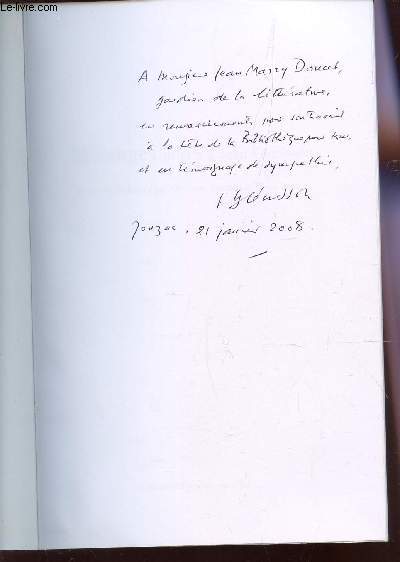 Le-livre.com
A Monsieur Jean Marry Doucet,
gardien de la littérature,
en remerciements pour son travail
à la tête de la Bibliothèque pour tous
et en témoignage de sympathie,
Jonzac, 21 janvier 2008.